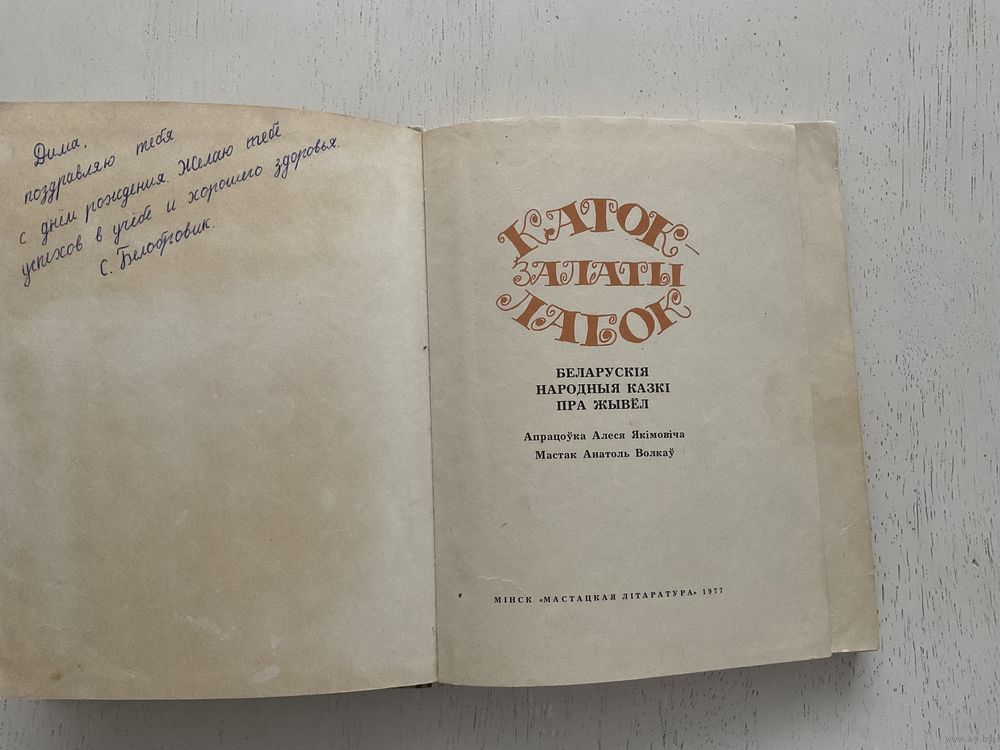 Дима,
поздравляю тебя
с днём рождения. Желаю тебе
успехов в учёбе и хорошего здоровья.
С. Белобровик.
КАТОК-
ЗАЛАТЫ
ЛАБОК
БЕЛАРУСКІЯ
НАРОДНЫЯ КАЗКІ
ПРА ЖЫВЁЛ
Апрацоўка Алеся Якімовіча
Мастак Анатоль Волкаў
МІНСК «МАСТАЦКАЯ ЛІТАРАТУРА» 1977
www.ay.by